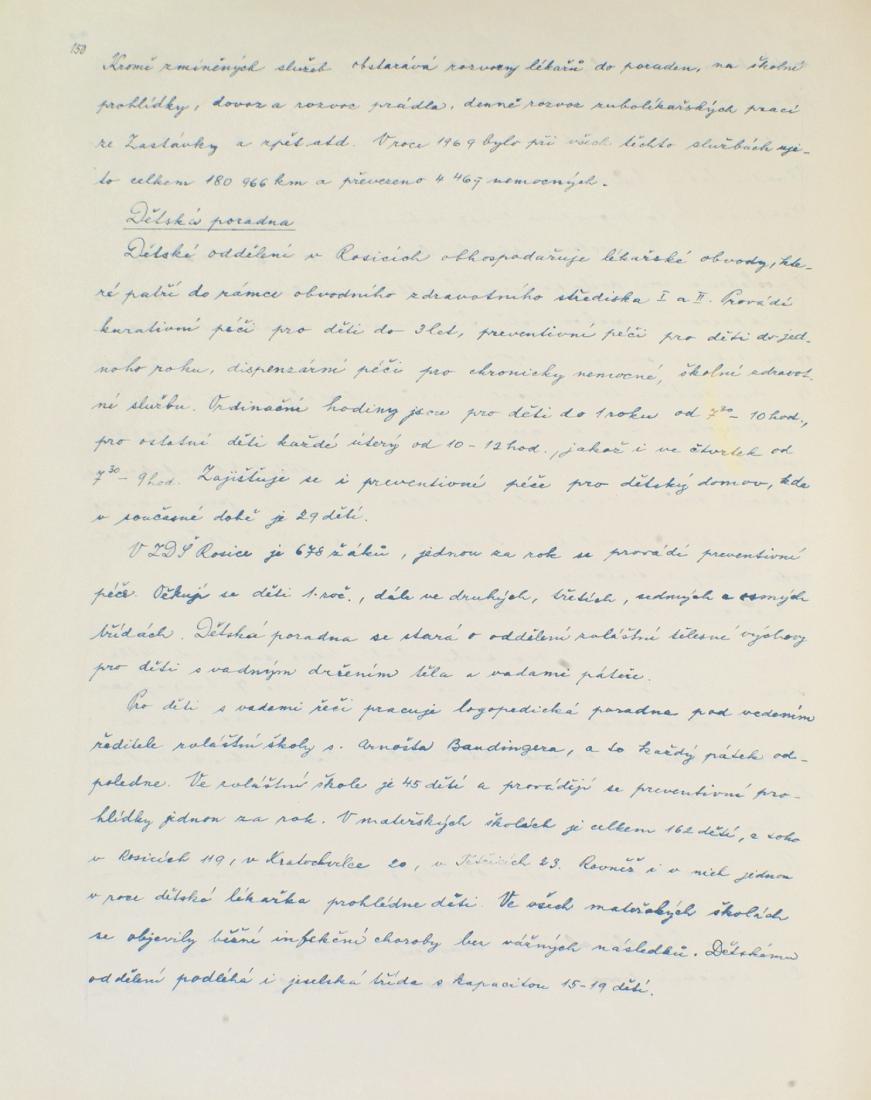 150
Kromě zmíněných služeb obstarává rozvozy lékařů do poraden, na školní
prohlídky, dovoz a rozvoz prádla, denně rozvoz zubolékařských prací
ze Zastávky a zpět atd. V roce 1969 bylo při všech těchto službách uje-
to celkem 180 966 km a převezeno 4 467 nemocných.
Dětská poradna
Dětské oddělení v Rosicích obhospodařuje lékařské obvody, kte-
ré patří do rámce obvodního zdravotního střediska I a II. Provádí
kurativní péči pro děti do 3 let, preventivní péči pro děti do jed-
noho roku, dispenzární péči pro chronicky nemocné, školní zdravot-
ní službu. Ordinační hodiny jsou pro děti do 1 roku od 7³⁰ - 10 hod.,
pro ostatní děti každé úterý od 10 - 12 hod., jakož i ve čtvrtek od
7³⁰ - 9 hod. Zajišťuje se i preventivné péče pro dětský domov, kde
v současné době je 29 dětí.
V ZDŠ Rosice je 678 žáků, jednou za rok se provádí preventivní
péče. Očkují se děti 1. roč., dále ve druhých, třetích, sedmých a osmých
třídách. Dětská poradna se stará o oddělení zvláštní tělesné výchovy
pro děti s vadným držením těla a vadami páteře.
Pro děti s vadami řeči pracuje logopedická poradna pod vedením
ředitele zvláštní školy s. Arnošta Baudingera, a to každý pátek od-
poledne. Ve zvláštní škole je 45 dětí a provádějí se preventivní pro-
hlídky jednou za rok. V mateřských školách je celkem 162 dětí, z toho
v Rosicích 119, v Kratochvilce 20, v Tetčicích 23. Rovněž i v nich jednou
v roce dětská lékařka prohlédne děti. Ve všech mateřských školách
se objevily běžné infekční choroby bez vážných následků. Dětskému
oddělení podléhá i jeselská třída s kapacitou 15-19 dětí.